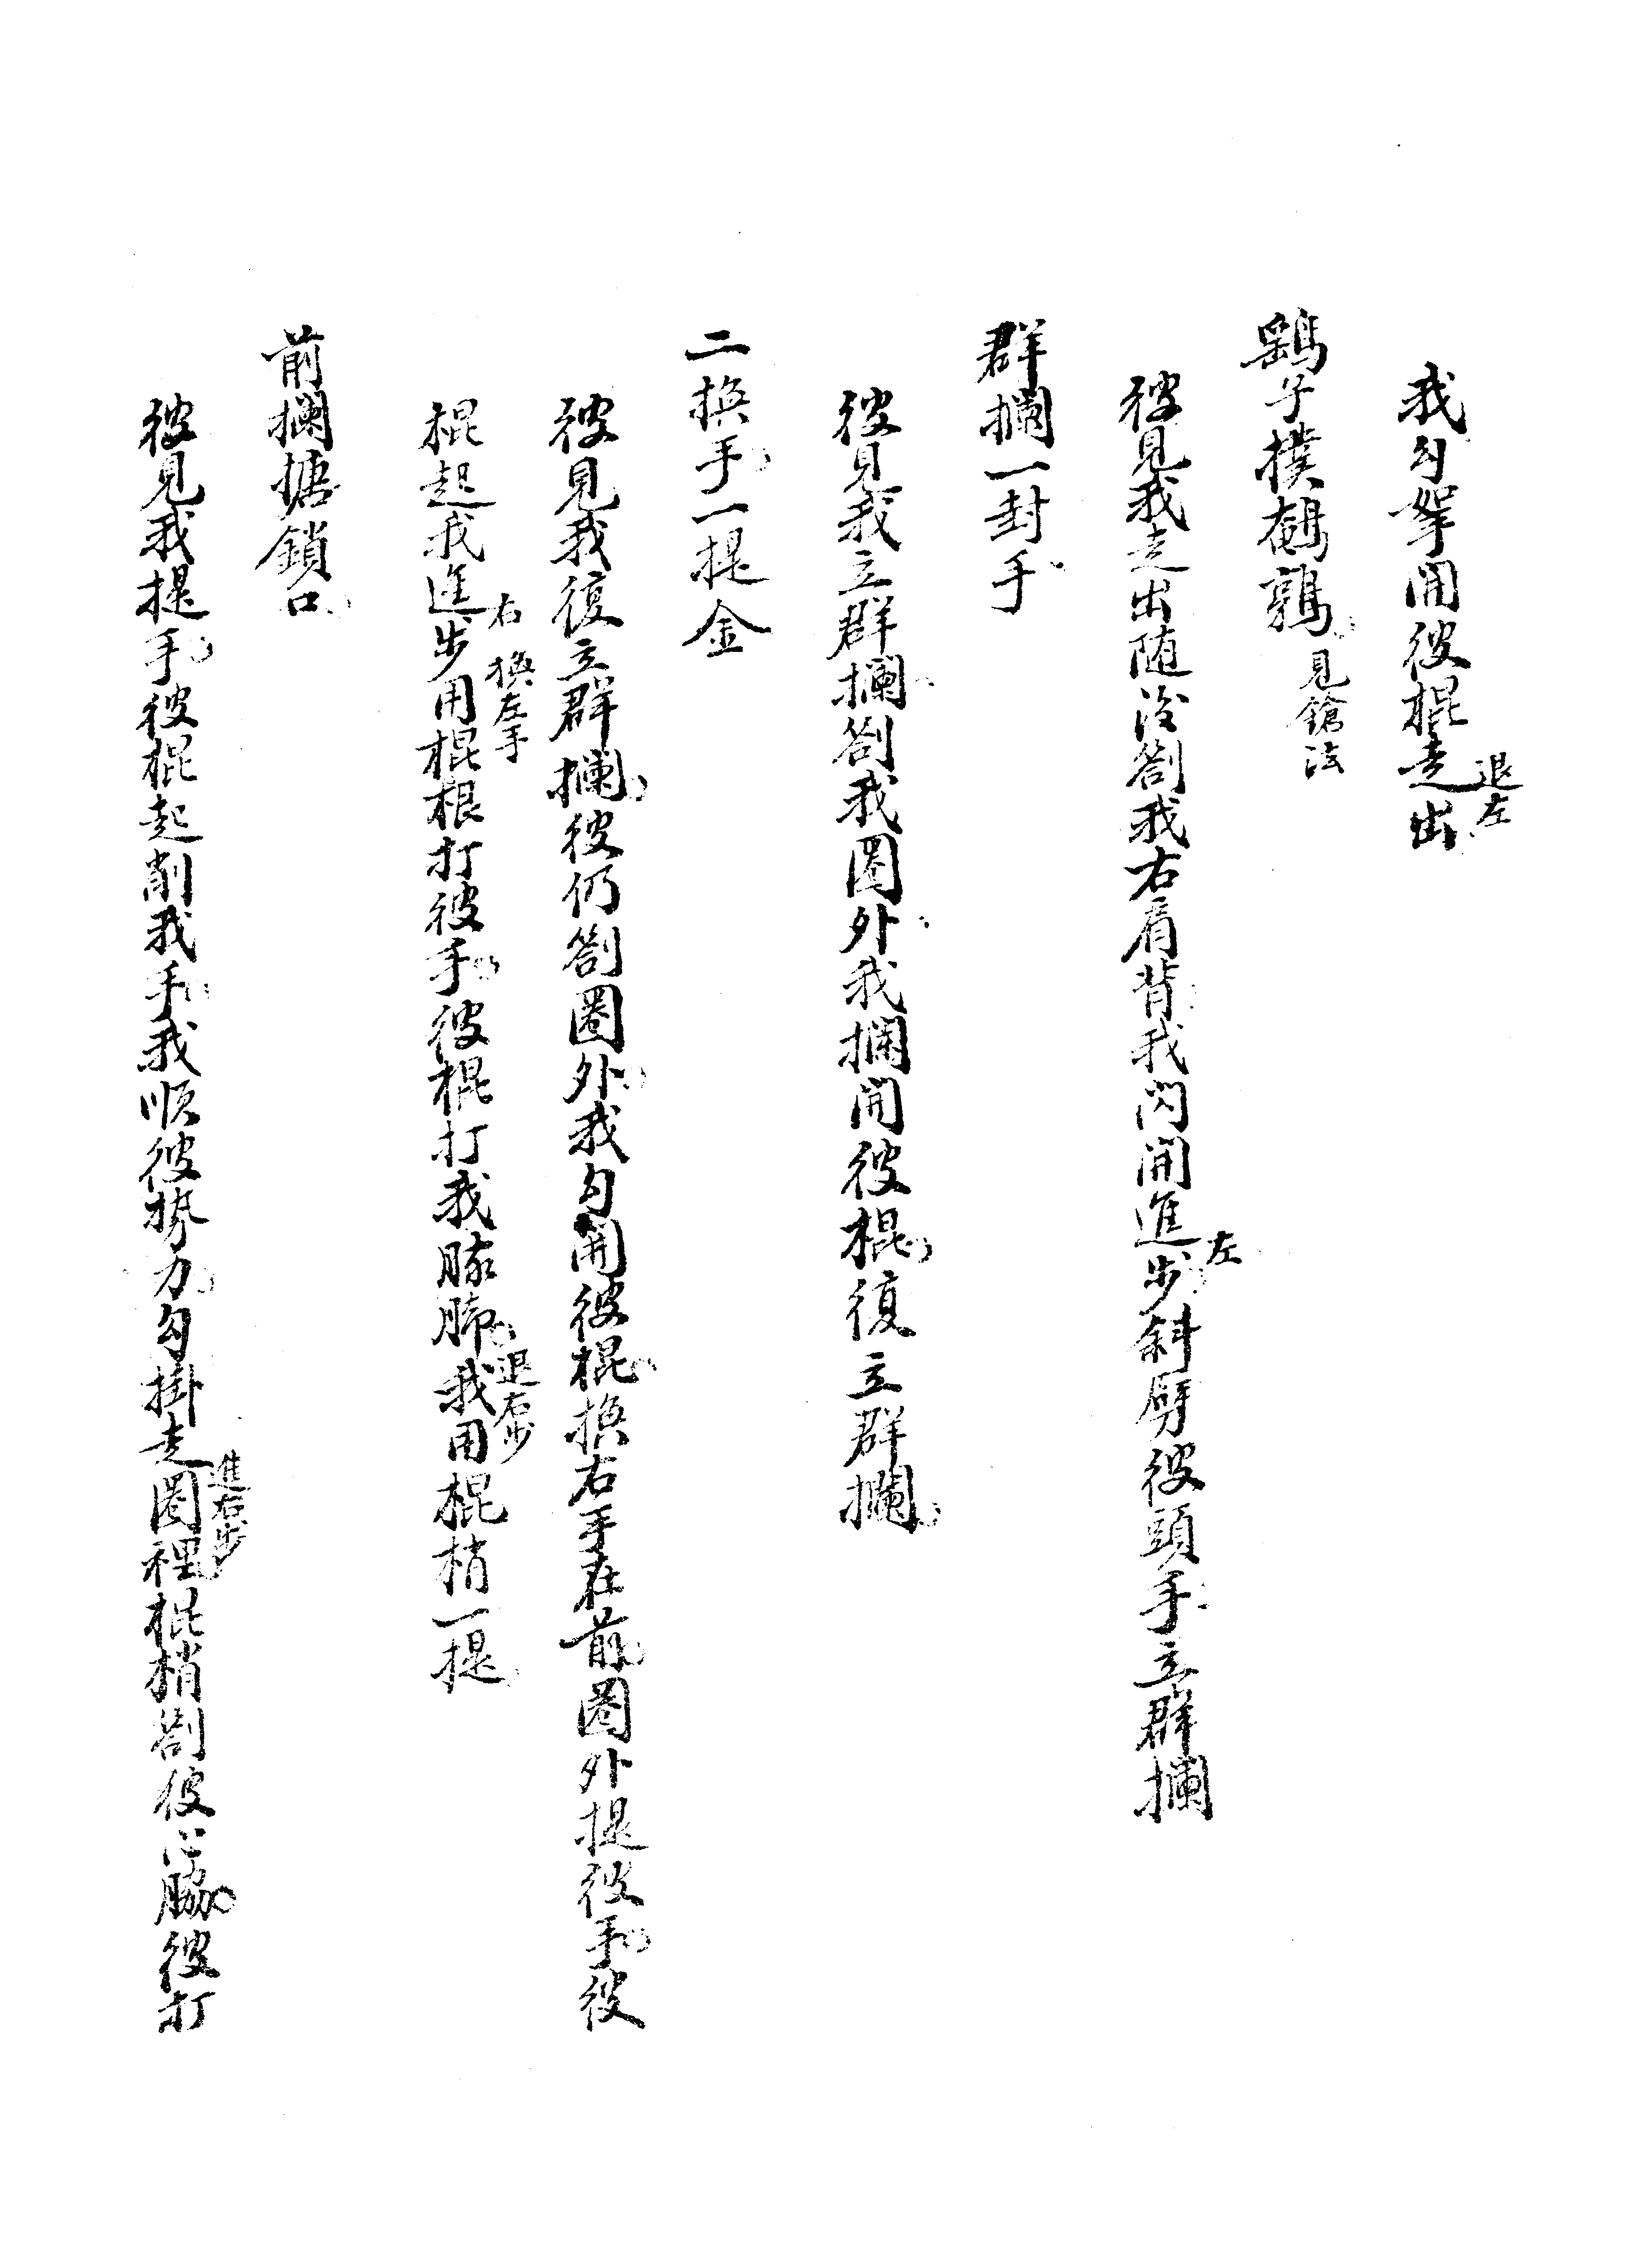 我勾拏開彼棍走出
退左
鷂子撲鵪鶉
見鎗法
彼見我走出随後劄我右肩背我閃開進步斜劈彼頭手立群攔
左
群攔一封手
彼見我立群攔劄我圈外我攔開彼棍復立群攔
二換手一提金
彼見我復立群攔彼仍劄圈外我勾開彼棍換右手在前圈外提彼手彼
棍起我進步用棍根打彼手彼棍打我膁腳我用棍梢一提
右 換左手
退右步
前攔搪鎖口
彼見我提手彼棍起削我手我順彼勢力勾掛走圈裡棍梢劄彼心脇彼打
進右步